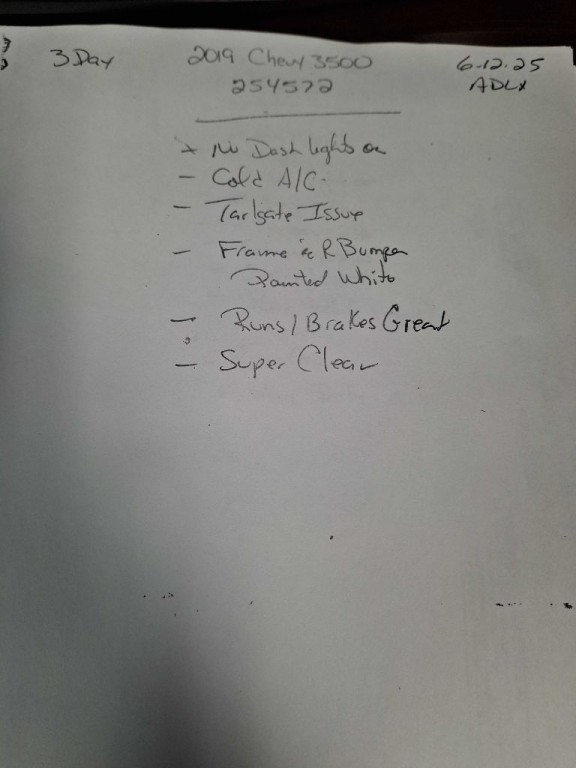 3 Day 2019 Chevy 3500 6.12.25
254572 ADLX
+ No Dash lights on
- Cold A/C-
- Tailgate Issue
- Frame & R Bumper
Painted White
- Runs / Brakes Great
- Super Clean